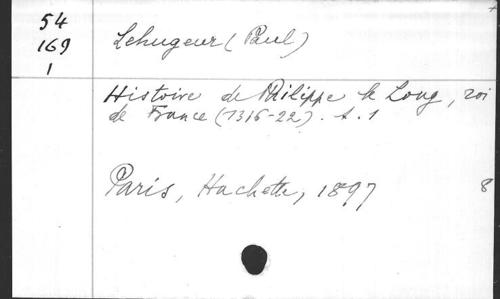 54
169
1
Lehugeur (Paul)
Histoire de Philippe le Long, roi
de France (1316-22). t. 1
Paris, Hachette, 1897
8